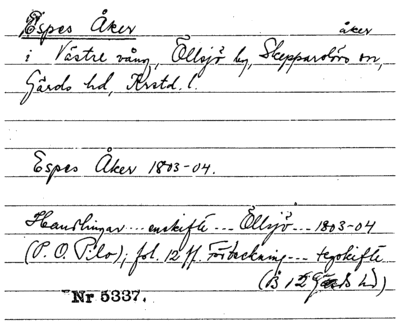 Espes Åker åker
i Västre vång, Ellsjö by, Skepparslövs sn,
Gärds hd, Krstd. l.
Espes Åker 1803-04.
Handlingar ... enskifte ... Ellsjö ... 1803-04
(P. O. Pilo); fol. 12 ff. Förteckning ... tegskifte
(B 12 Gärds hd)
Nr 5337.